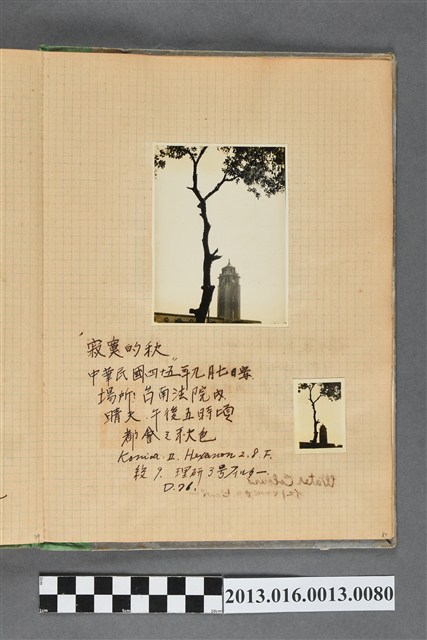 "寂寞的秋"
中華民國四五年九月七日
場所 台南法院
晴天. 午後五時頃
都會之秋色
Konica. II. Hexanon 2.8. F.
絞 9. 理研 3号フィルター
D.76.
Water Colours
2013.016.0013.0080